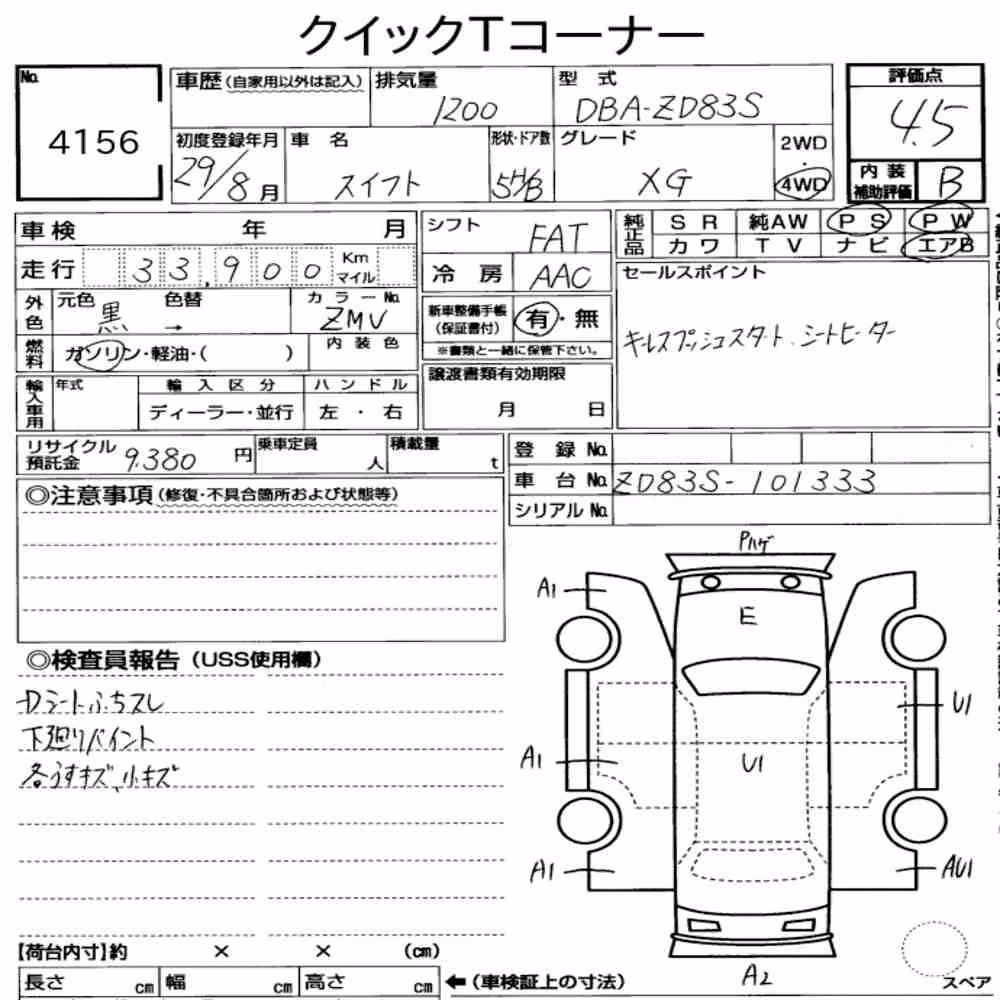 クイックTコーナー
No.
4156
車歴(自家用以外は記入)
排気量
1200
型 式
DBA-ZD83S
評価点
4.5
初度登録年月
29/8月
車 名
スイフト
形状・ドア数
5H/B
グレード
XG
2WD
・
4WD
内 装
補助評価
B
車検 年 月
シフト
FAT
純正品
SR 純AW PS PW
カワ TV ナビ エアB
走行 33,900 Km マイル
冷 房
AAC
セールスポイント
キーレスプッシュスタート、シートヒーター
外色
元色 黒
色替 →
カラーNo.
ZMV
新車整備手帳
(保証書付)
有・無
※書類と一緒に保管下さい。
燃料
ガソリン・軽油・( )
内装色
輸入車用
年式
輸入区分
ディーラー・並行
ハンドル
左 ・ 右
譲渡書類有効期限
月 日
リサイクル
預託金 9,380 円
乗車定員
人
積載量
t
登 録 No.
車 台 No. ZD83S-101333
シリアル No.
◎注意事項(修復・不具合箇所および状態等)
◎検査員報告(USS使用欄)
Dシートふちスレ
下廻りペイント
各うすキズ、小キズ
Pハゲ
A1
E
U1
A1
U1
A1
AU1
A2
スペア
【荷台内寸】約 × × (cm)
長さ cm 幅 cm 高さ cm
←(車検証上の寸法)